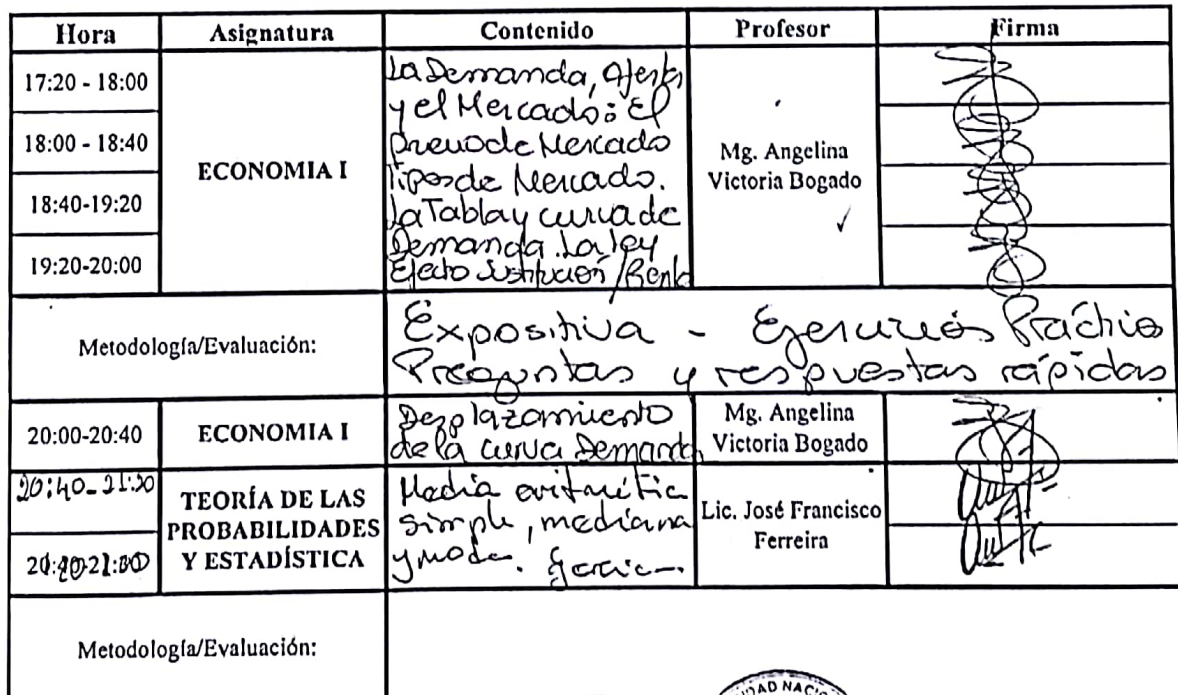 Hora Asignatura Contenido Profesor Firma
17:20 - 18:00
18:00 - 18:40
18:40-19:20
19:20-20:00
ECONOMIA I
La Demanda, Oferta
y el Mercado: El
precio de Mercado
Tipos de Mercado.
La Tabla y curva de
Demanda. La ley
Efecto Sustitución/Renta
Mg. Angelina
Victoria Bogado
Metodología/Evaluación:
Expositiva - Ejercicios Prácticos
Preguntas y respuestas rápidas
20:00-20:40
ECONOMIA I
Desplazamiento
de la curva Demanda
Mg. Angelina
Victoria Bogado
20:40-21:20
TEORÍA DE LAS
PROBABILIDADES
Y ESTADÍSTICA
Media aritmética
simple, mediana
y moda.
Lic. José Francisco
Ferreira
Metodología/Evaluación: